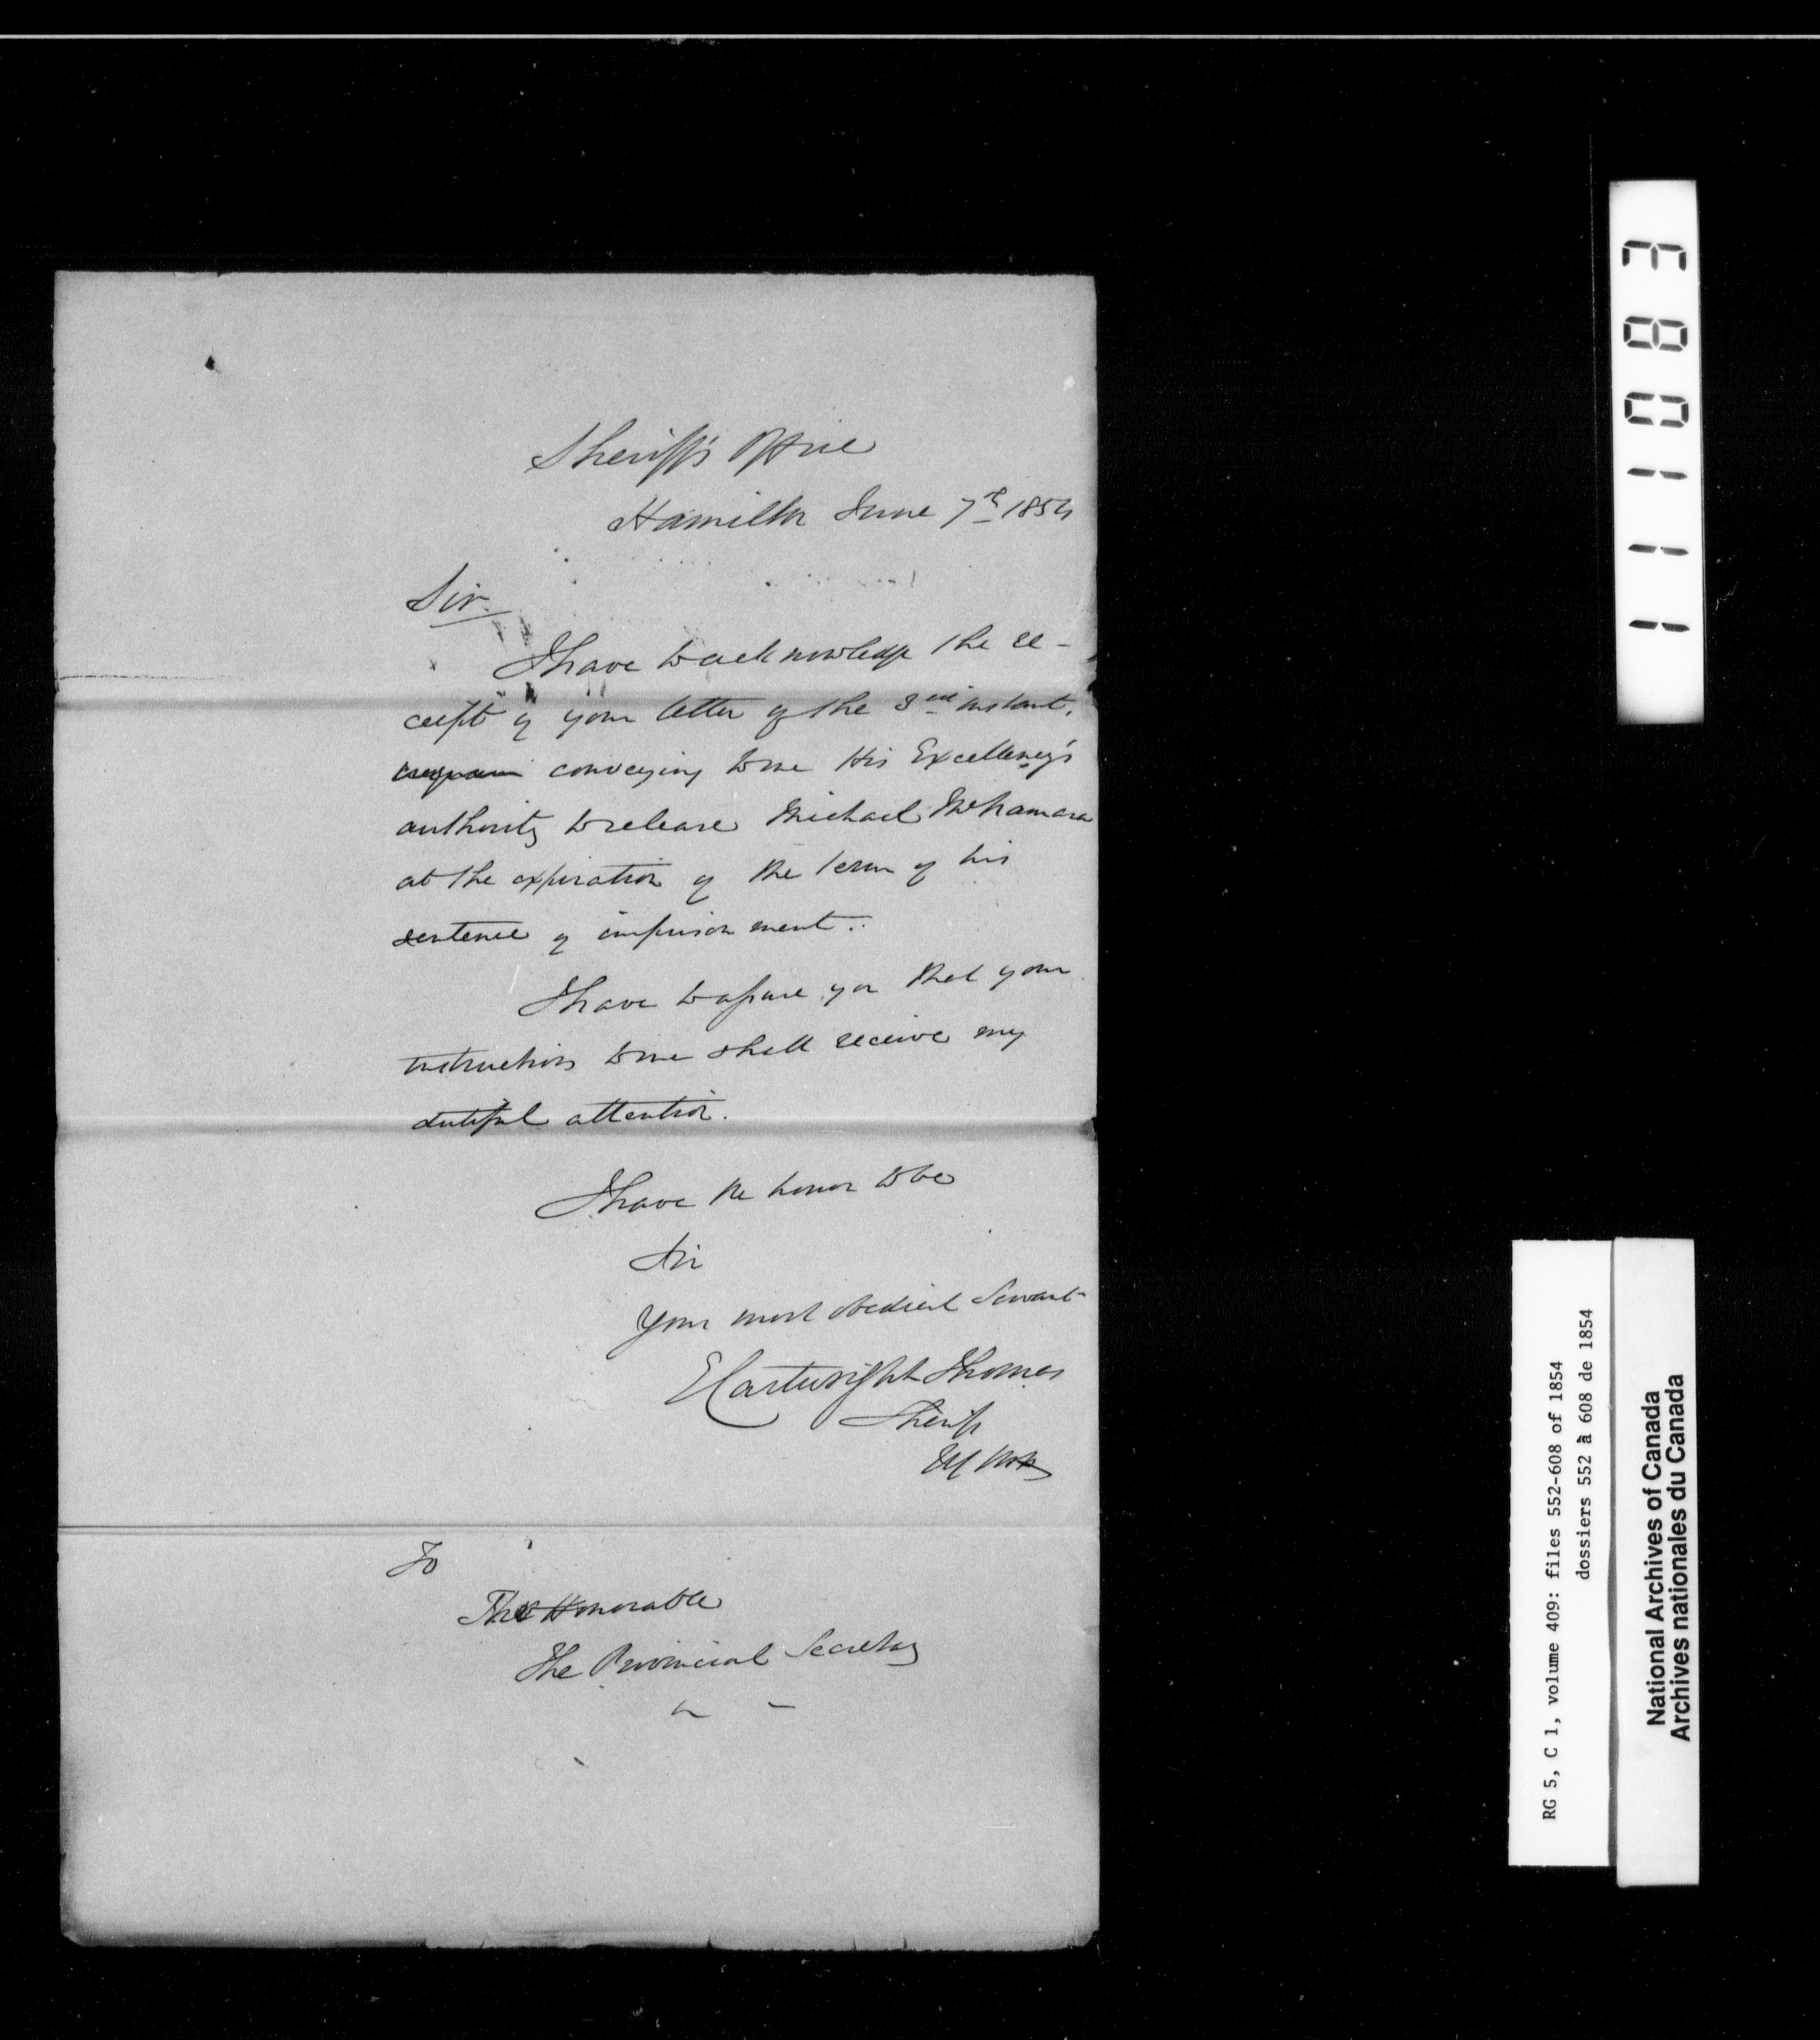 Sheriff's Office
Hamilton June 7th 1854
Sir.
I have to acknowledge the re-
ceipt of your letter of the 3rd instant,
conveying to me His Excellency's
authority to release Michael McNamara
at the expiration of the term of his
sentence of imprisonment.
I have to assure you that your
instructions to me shall receive my
dutiful attention.
I have the honor to be
Sir
Your most obedient Servant
E Cartwright Thomas
Sheriff
To
The Honorable
The Provincial Secretary
1111083
RG 5, C 1, volume 409: files 552-608 of 1854
dossiers 552 à 608 de 1854
National Archives of Canada
Archives nationales du Canada